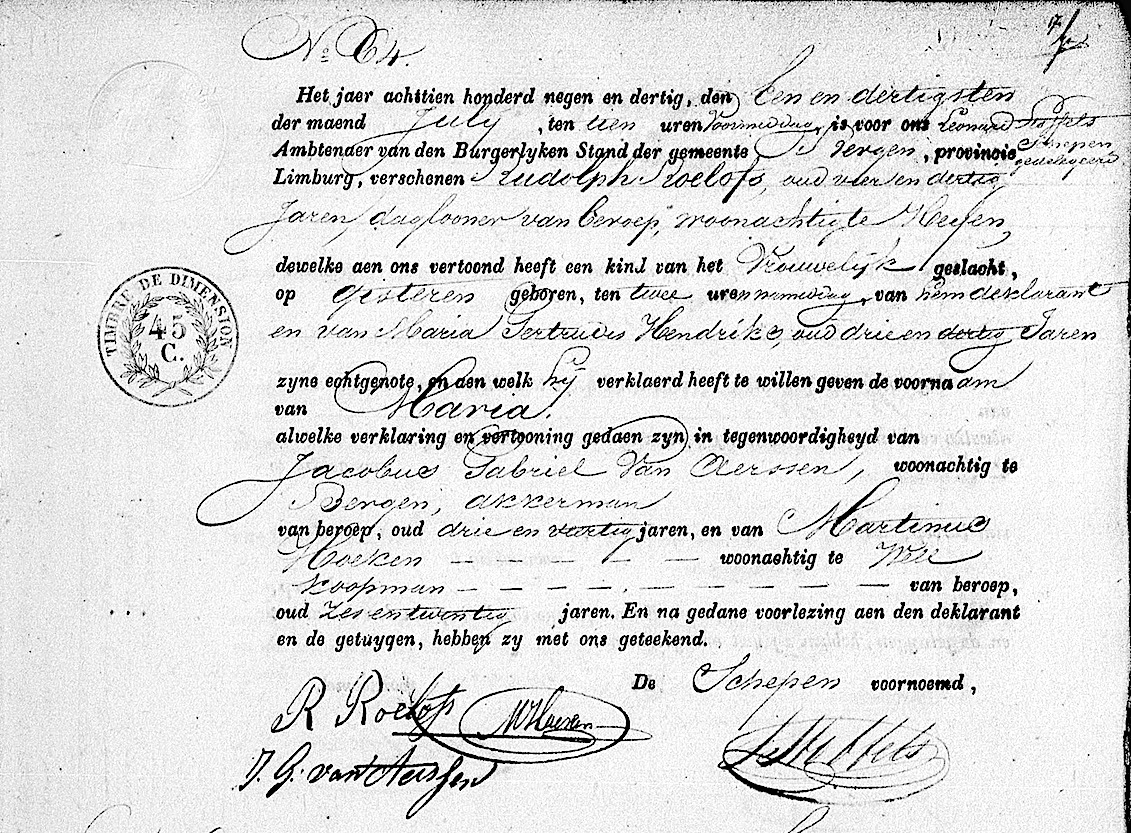 No 64.
Het jaer achttien honderd negen en dertig, den Een en dertigsten
der maend July, ten tien uren Voormiddag, is voor ons Leonard
Schepen
gedelegeerd
Ambtenaer van den Burgerlyken Stand der gemeente Bergen, provincie
Limburg, verschenen Rudolph Roelofs, oud vier en dertig
Jaren, daglooner van beroep, woonachtig te Heyen,
dewelke aen ons vertoond heeft een kind van het Vrouwelyk geslacht,
op Gisteren geboren, ten twee uren namiddag, van hem deklarant
en van Maria Gertrudis Hendriks, oud drie en dertig Jaren
zyne echtgenote, en aen welk hy verklaerd heeft te willen geven de voornaam
van Maria.
alwelke verklaring en vertooning gedaen zyn in tegenwoordigheyd van
Jacobus Gabriel Van Aerssen, woonachtig te
Bergen, akkerman
van beroep, oud drie en veertig jaren, en van Martinus
Hoeken — — — — — woonachtig te Well
Koopman — — — — — — — — van beroep,
oud Zes en twentig jaren. En na gedane voorlezing aen den deklarant
en de getuygen, hebben zy met ons geteekend.
De Schepen voornoemd,
R Roelofs
J. G. van Aerssen
TIMBRE DE DIMENSION
45
C.